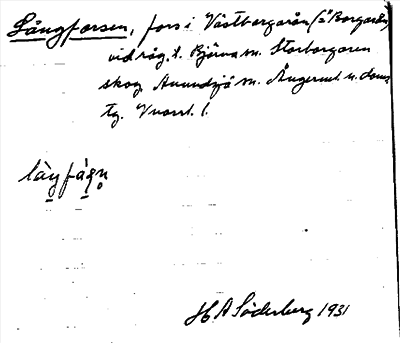 Långforsen, fors i Västborgarån (="Borgarån)
vid råg. t. Björna m. Storborgaren
skog Anundsjö m. Ångerml. n. doms.
tg. Vnorrl. l.
H A Söderberg 1931